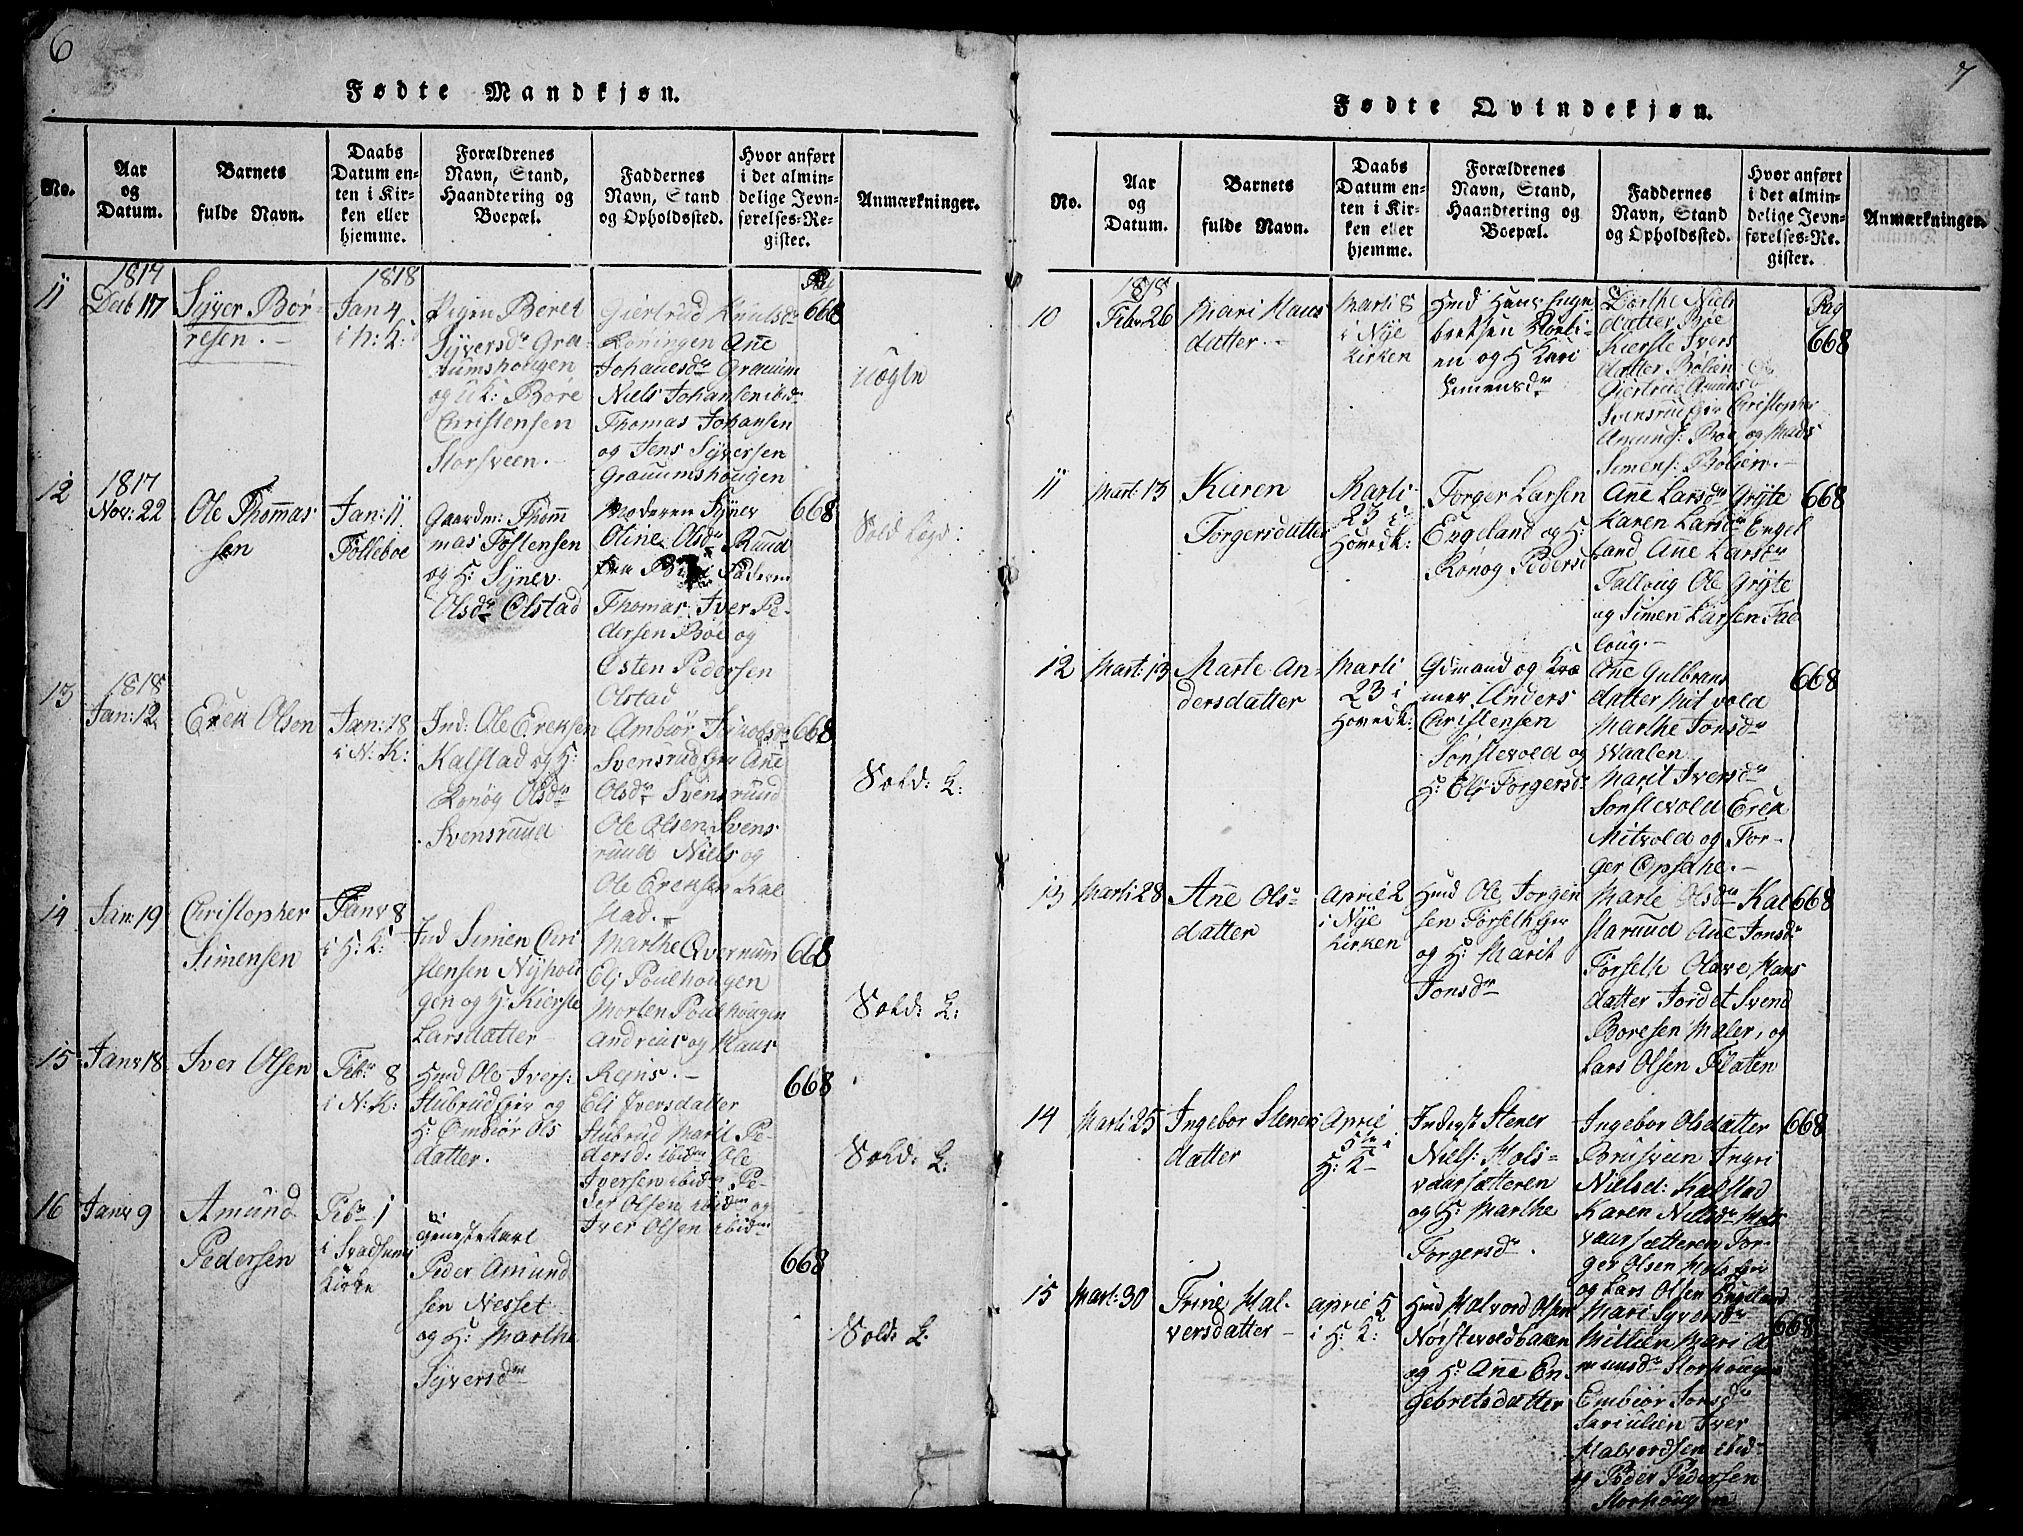 6
Fødte Mandkjøn.
No.
Aar
og
Datum.
Barnets
fulde Navn.
Daabs
Datum en-
ten i Kir-
ken eller
hjemme.
Forældrenes
Navn, Stand,
Haandtering og
Boepæl.
Faddernes
Navn, Stand
og Opholdssted.
Hvor anført
i det almin-
delige Jevn-
førelses-Re-
gister.
Anmærkninger.
11
1817
Decb 17
Syver Bør-
resen.
1818
Jan 4
i H: K:
Pigen Beret
Syversdr Gra-
umshougen
og UK: Børe
Christensen
Storsveen.
Giertrud Knutsdr
Roningen Ane
Johanesdr Grauim
Niels Johansen ibdm
Thomas Johansen
og Jens Syversen
Grauumshougen
Pag
668
uægte
12
1817
Nov: 22
Ole Thomas
sen
Jan: 11
Folleboe
Gaardm: Thom
mas Tostensen
og H: Synev
Olsdr Olstad
Moderen Synev
Oline Olsdr Ruud
Faderen
Thomas Iver Pe-
dersen Bøe og
Osten Pedersen
Olstad
668
13
1818
Jan: 12
Erek Olsen
Jan: 18
i N: K:
Ind: Ole Ereksen
Kalstad og H:
Ronøg Olsdr
Svensruud
Ambiør
Svensrud Ane
Olsdr Svensruud
Ole Olsen Svens
ruud Niels og
Ole Ereksen Kal
stad.
668
Sold: L:
14
Jan: 19
Christopher
Simensen
i H: K:
Ind Simen Chri
stensen Nyhou
gen og H: Kierste
Larsdatter
Marthe Qvernum
Eli Poulhougen
Morten Poulhougen
Andreas og Hans
Rejns.
668
Sold: L:
15
Janv 18
Iver Olsen
Febr 8
i N: K:
Hmd Ole Ivers:
Stubrud og
H: Ombiør Ols
datter.
Eli Iversdatter
Stubrud Marit Pe-
dersd: ibidm Ole
Iversen ibidm Pe-
der Olsen ibidm og
Iver Olsen ibidm
668
Sold: L:
16
Janv 9
Amund
Pedersen
Febr 1
i Svadsums
Kirke
Peder Amund
sen Nesset
og H: Marthe
Syversdr
668
Sold: L.
7
Fødte Qvindekjøn.
No.
Aar
og
Datum.
Barnets
fulde Navn.
Daabs
Datum en-
ten i Kir-
ken eller
hjemme.
Forældrenes
Navn, Stand,
Haandtering og
Boepæl.
Faddernes
Navn, Stand
og Opholdssted.
Hvor anført
i det almin-
delige Jevn-
førelses-Re-
gister.
Anmærkninger.
10
1818
Febr 26
Mari Hans
datter
Marti 8
i Nye
Kirken
Hmd Hans Enge
bretsen Borli-
en og H: Kari
Simensdr
Dorthe Niels
datter Bøe
Kierste Ivers
datter Bølien
Giertrue Amuns
Christopher
Amunds: Bøe og Mads
Simens: Bølien.
Pag
668
11
Mart: 13
Karen
Torgersdatter
Marti
23 i
Hovedk:
Torger Larsen
Engeland og H:
Rønøg Pedersd
Ane Larsdr Gryte
Karen Larsdr Enge
land Ane Larsdr
Falloug Ole Gryte
og Simen Larsen Fal
loug.
668
12
Mart: 13
Marte An-
dersdatter
Marti
23 i
Hovedk:
Gdmand og Kræ
mer Anders
Christensen
Sønstevold og
H: Eli Torgersd:
Ane Gulbrans
datter Mitvold
Marthe Jonsdr
Waalen
Marit Iversdr
Sønstevold Erek
Mitvold og Tor-
ger Opsahe.
668
13
Marti 28
Ane Ols-
datter
April 2
i Nye
Kirken
Hmd Ole Jorgen
sen Forseth
og H: Marit
Jonsdr
Marte Olsdr Kal
staruud Ane Jonsdr
Forseth Olave Hans
datter Jordet Svend
Boresen Maler, og
Lars Olsen Flaten
668
14
Marti 25
Ingebor Steners
datter
April
5te i
H: K
Inderst Stener
Niels: Hols-
vaarsætteren
og H: Marthe
Torgersdr.
Ingebor Olsdatter
Bruisveen Ingri
Nielsd: Kalstad
Karen Nielsdr Hols
vaarsætteren Tor-
ger Olsen
og Lars Olsen Engeland
668
15
Mart: 30
Trine Hal-
versdatter
April 5
i H: K:
Hmd Halvord Olsen
Nørstevoldbaken
og H: Ane En-
gebretsdatter
Mari Syversdr
Millien Mari A
munsdr Storhougen
Embiør Jonsdr
Iver
Halvordsen ibid
og Peder Pedersen
Storhougen
668